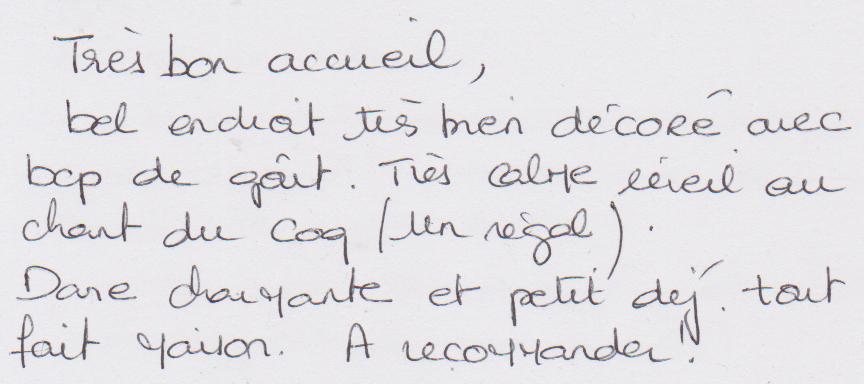 Très bon accueil,
bel endroit très bien décoré avec
bcp de goût. Très calme réveil au
chant du coq (Un régal).
Dame charmante et petit déj. tout
fait maison. A recommander!